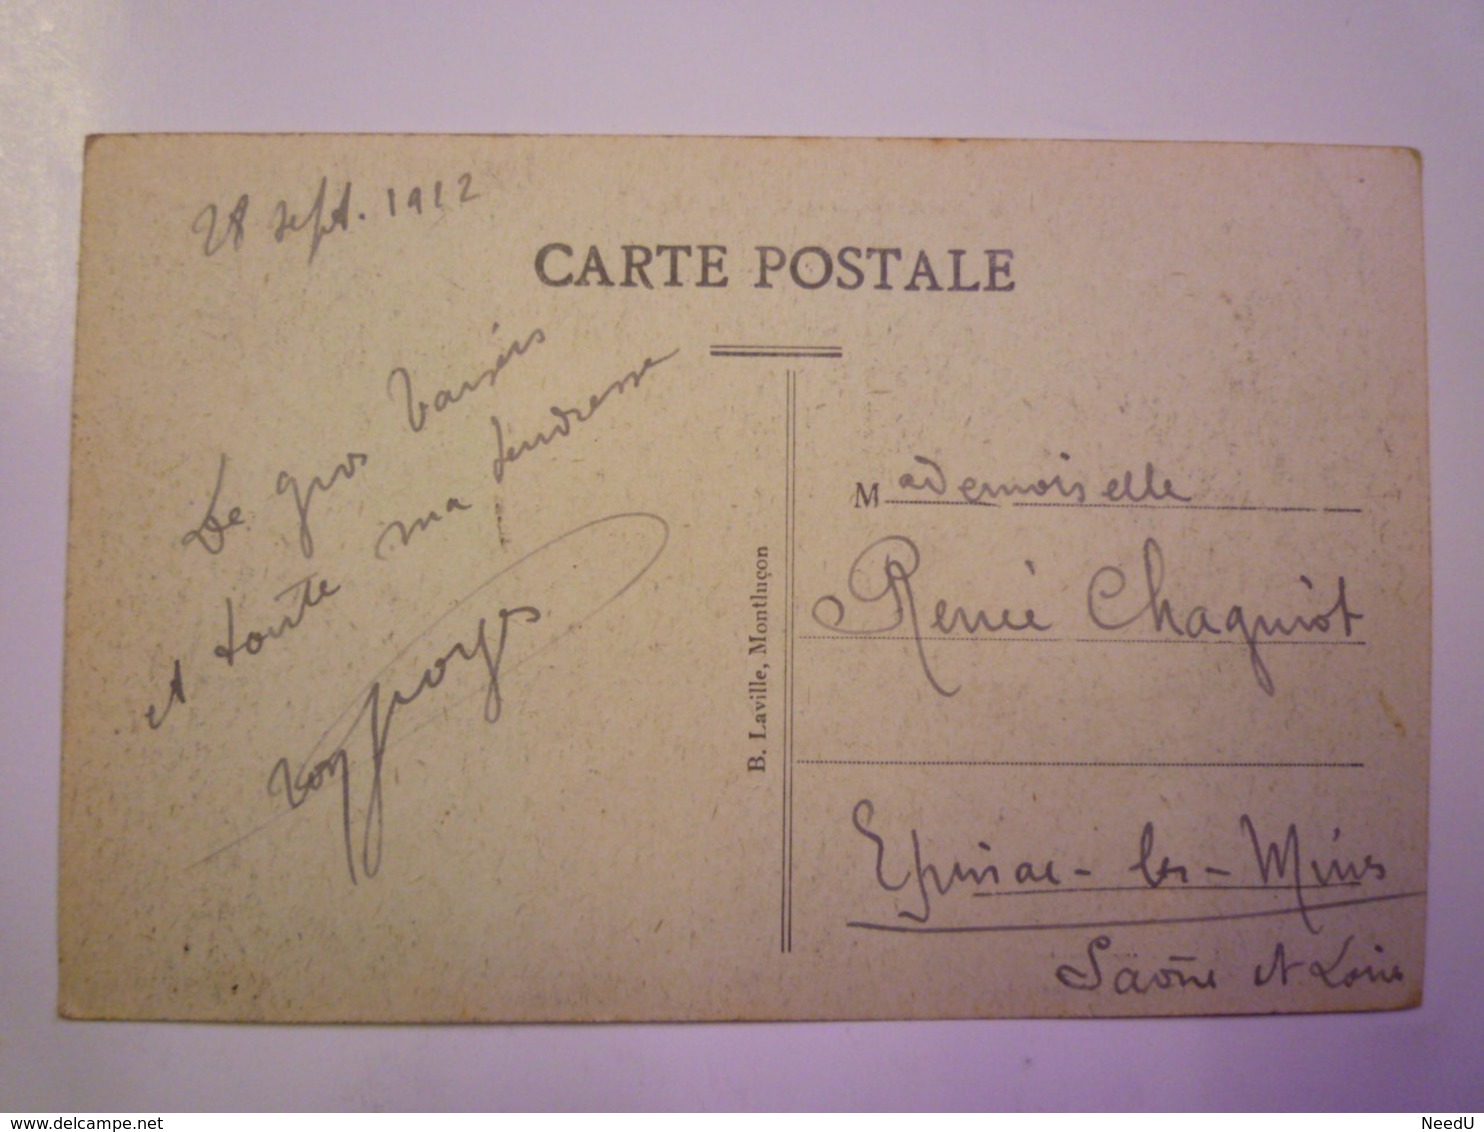 28 sept. 1912
CARTE POSTALE
De gros baisers
et toute ma tendresse
ton Georges
B. Laville, Montluçon
Mademoiselle
Renée Chagniot
Epinac-les-Mines
Saône et Loire
www.delcampe.net
NeedU